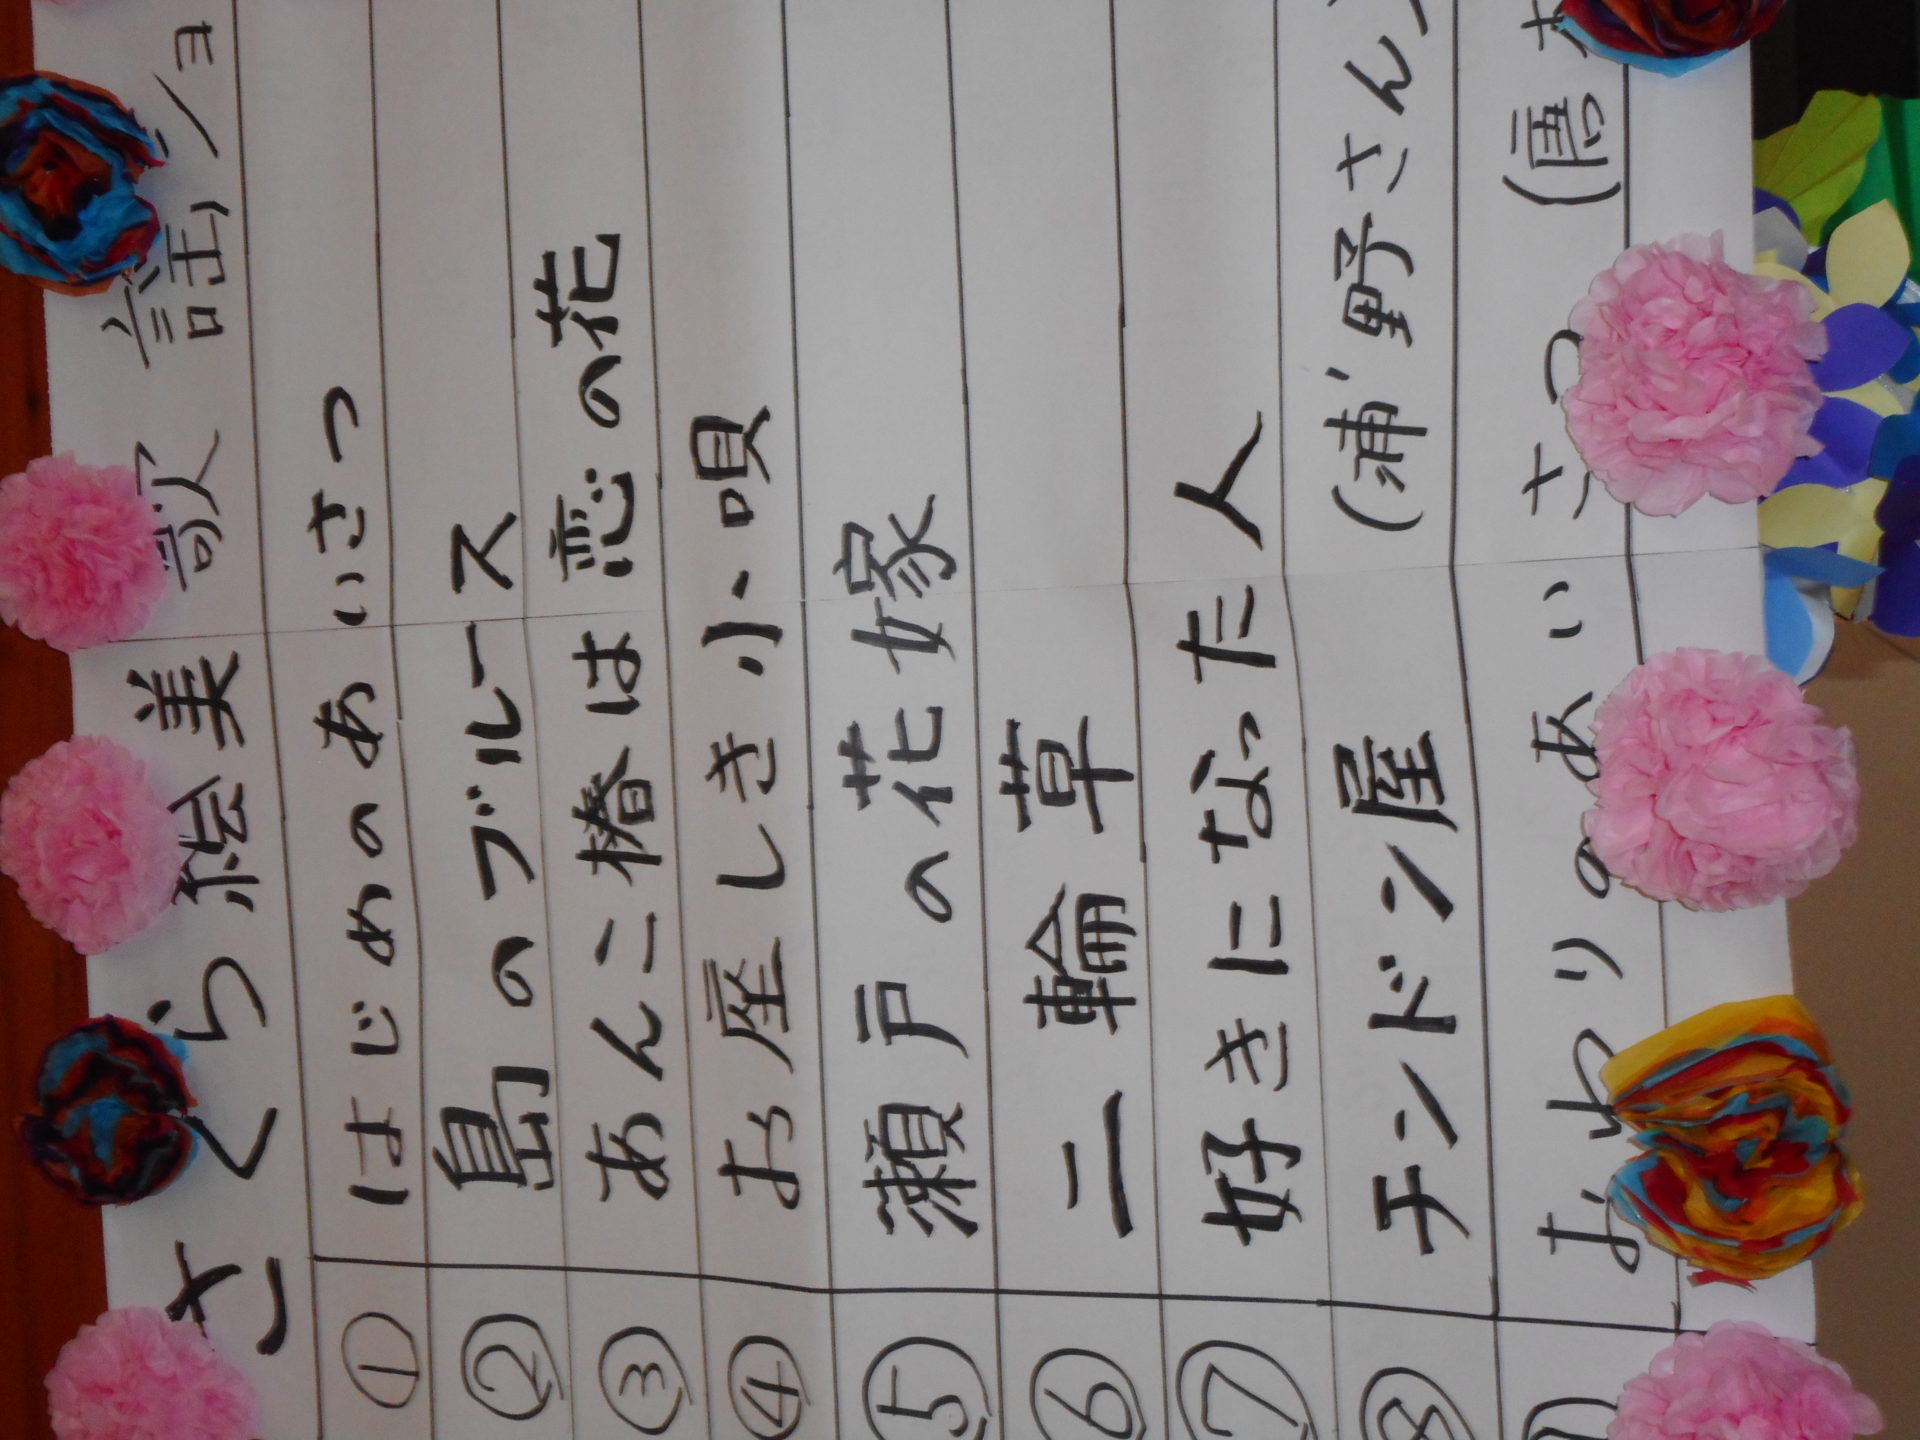 さくら絵美 歌謡ショ
① はじめのあいさつ
② 島のブルース
③ あんこ椿は恋の花
④ お座しき小唄
⑤ 瀬戸の花嫁
⑥ 二輪草
⑦ 好きになった人
⑧ チンドン屋 (浦野さん
おわりのあいさつ